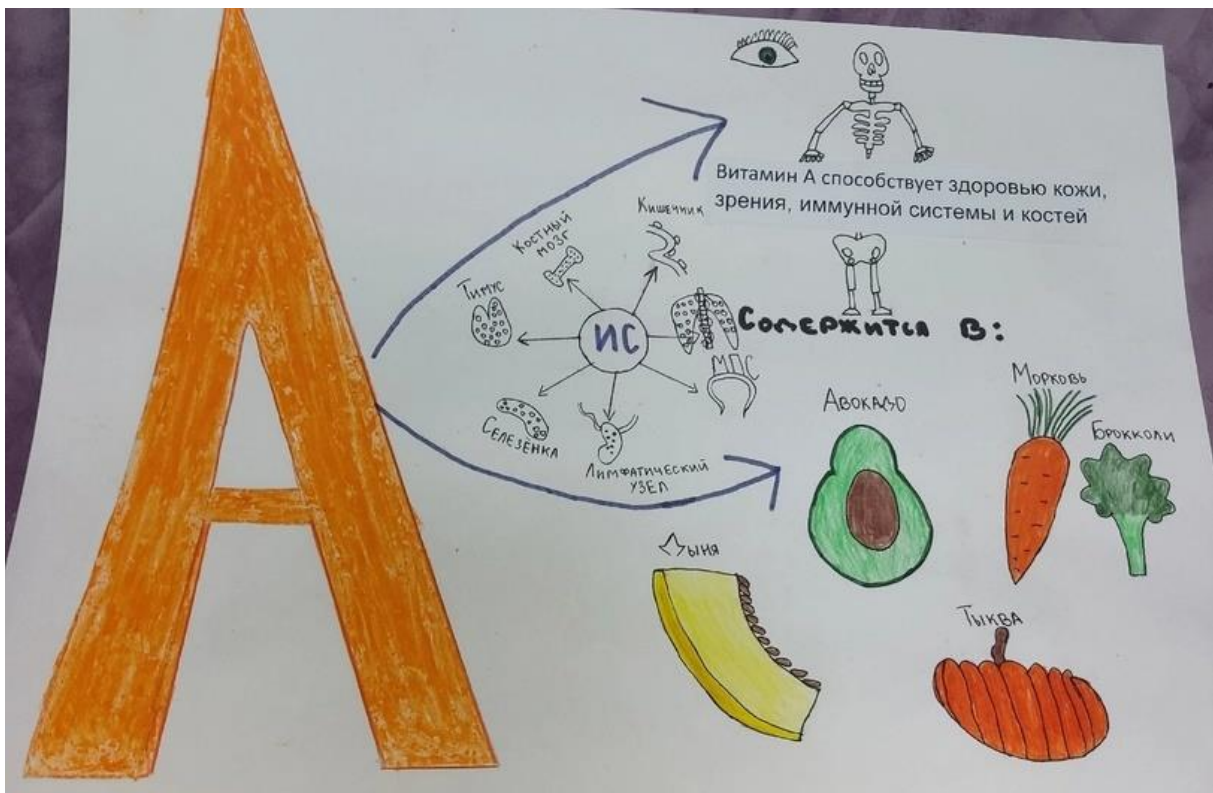 А
Витамин А способствует здоровью кожи,
зрения, иммунной системы и костей
Кишечник
Костный
мозг
Тимус
ИС
МПС
Селезёнка
Лимфатический
узел
Содержится в:
Авокадо
Морковь
Брокколи
Дыня
Тыква